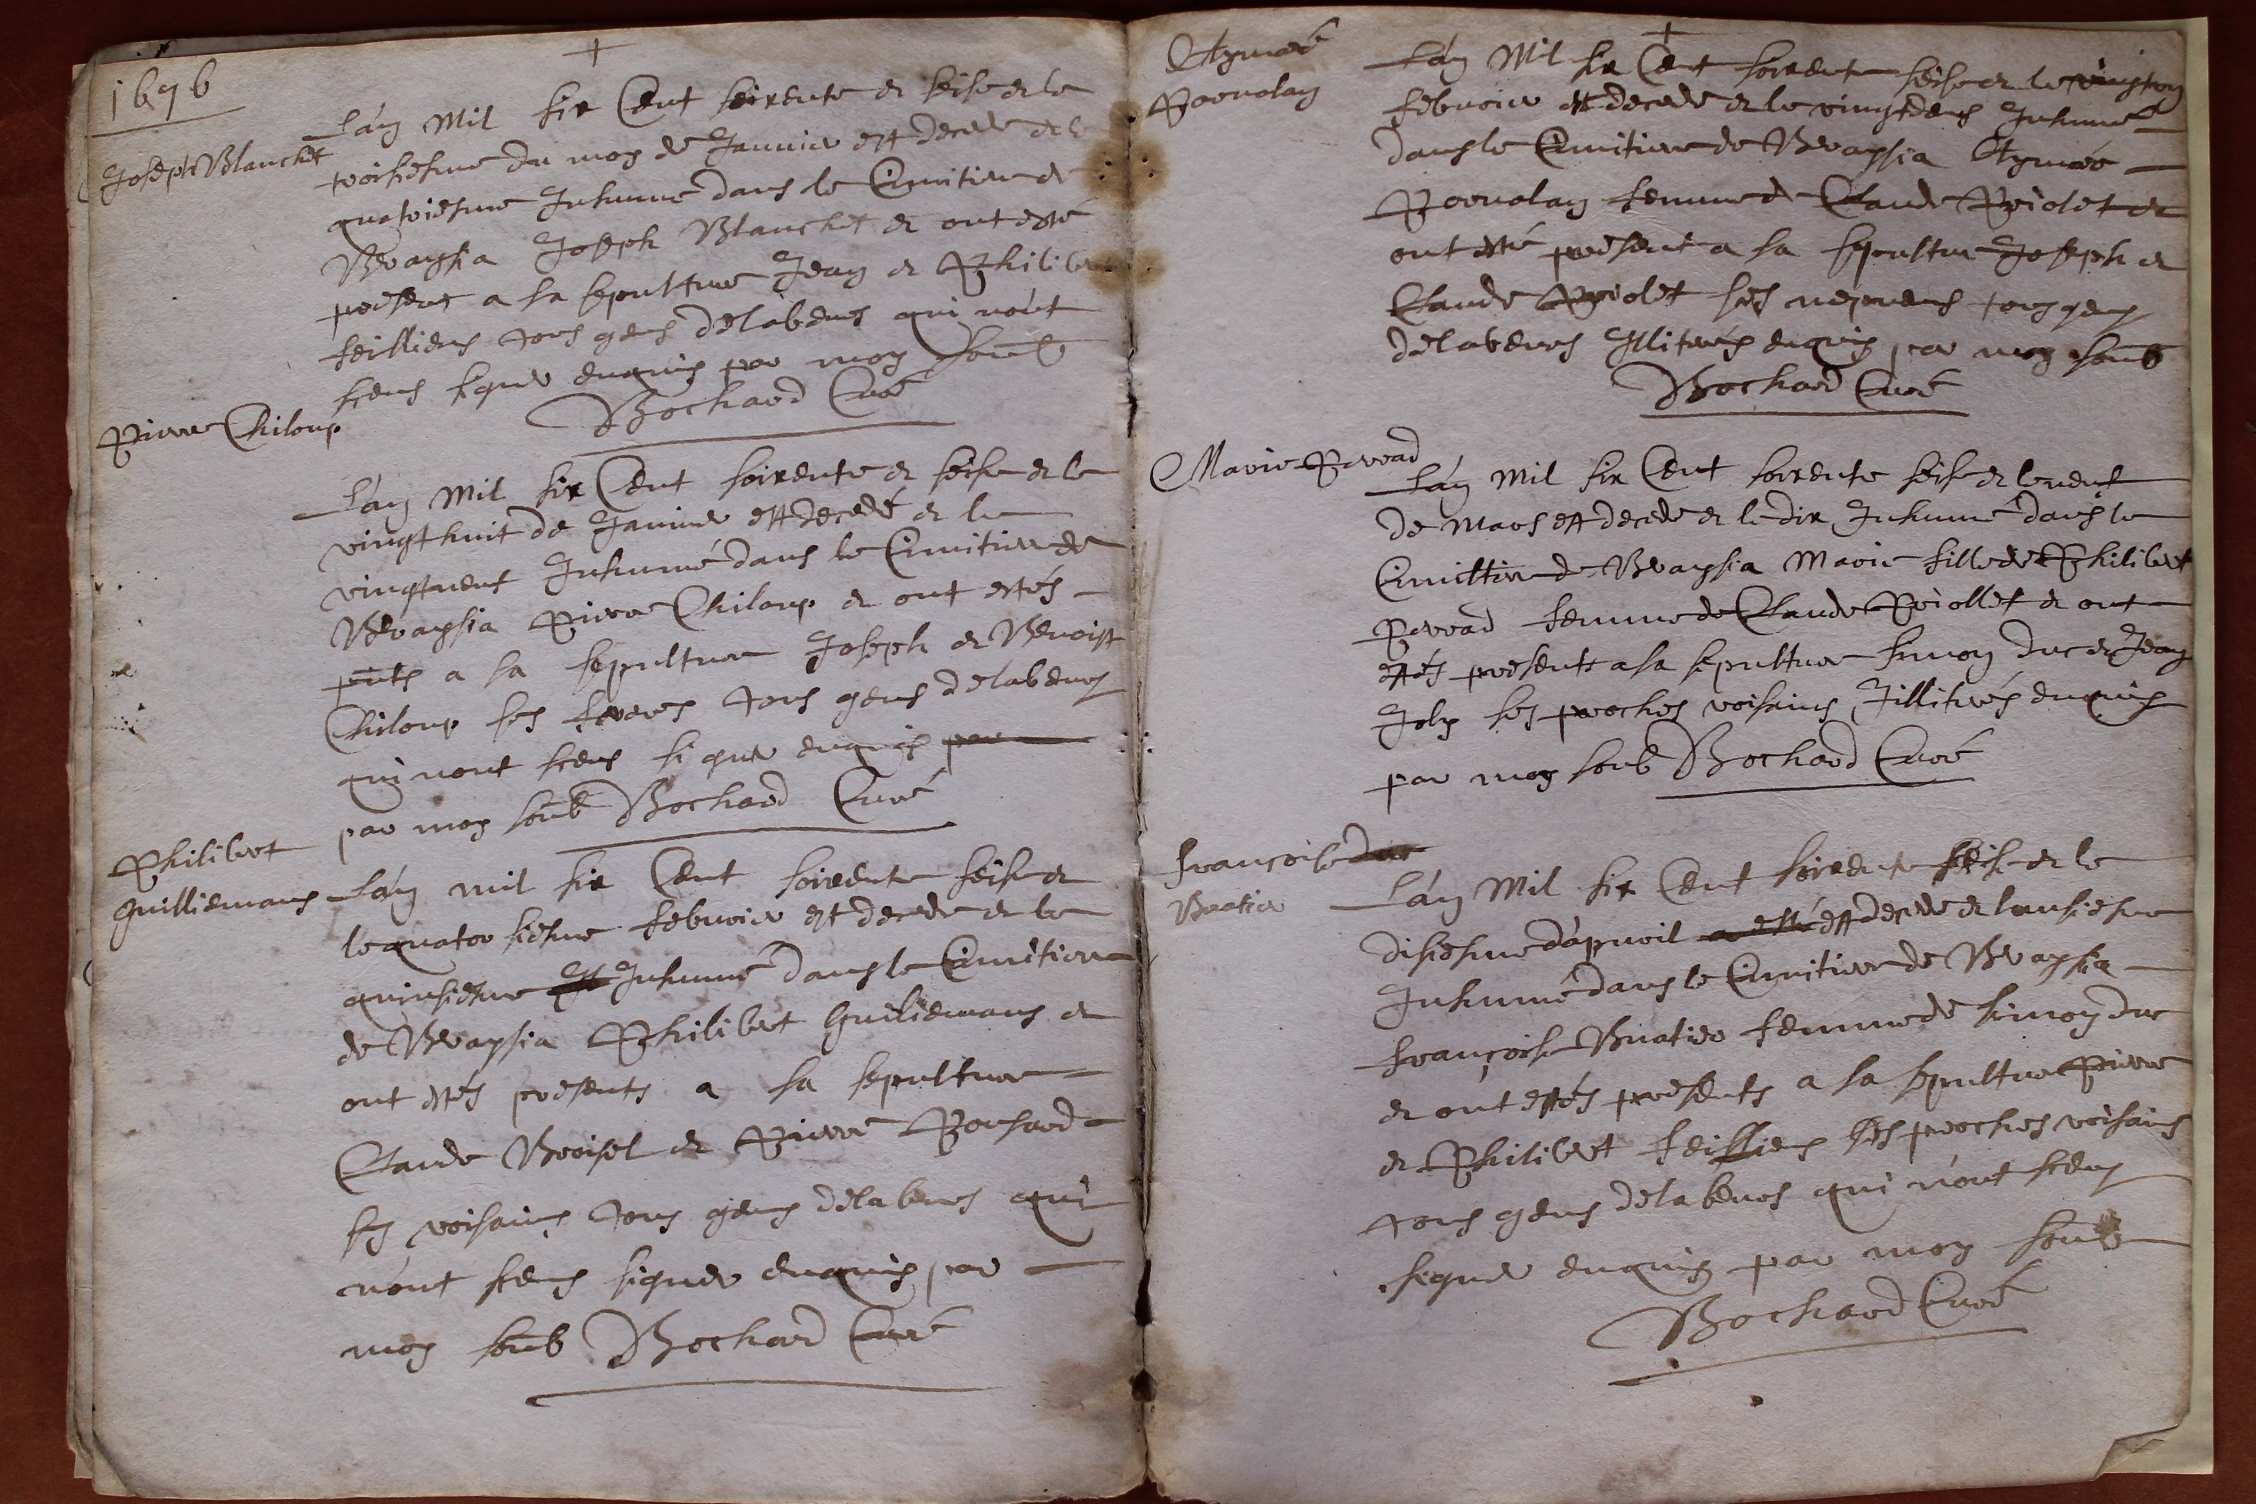 1676
Joseph Blanchet
Lán Mil six Cent soixente et seise et le
troisiesme du moy de Janvier est decede et le
quatriesme Inhummé dans le Cimitiere de
Bvaysia Joseph Blanchet et ont esté
present a sa sepulture Jean et Philibert
feilliens tous gens delabeurs qui nónt
sceus signer enquis par moy soub
Bochard Curé
Pierre Chiloup
Lán Mil six Cent soixente et seise et le
vingthuit de Janvier est decedé et le
vingtneuf Inhumé dans le Cimitiere de
Bvaysia Pierre Chiloup et ont estés
pnts a sa sepulture Joseph et Benoist
Chiloup ses freres tous gens delabeurs
qui nont sceus signer enquis par
par moy soub Bochard Curé
Philibert
Guilliemans
Lán mil six Cent soixente seise et
le quatorsiesme febvrier est decede et le
quinsiesme Inhummé dans le Cimitiere
de Bvaysia Philibert Guiliemans et
ont estés presents a sa sepulture
Claude Broisel et Pierre Ponsard
ses voisains tous gens delabeurs qui
nónt sceus signer enquis par
moy soub Bochard Curé
Aymeé
Porvolan
Lán Mil six Cent soixente seise et le vingtun
febvrier est decede et le vingtdeus Inhummé
dans le Cimitiere de Bvaysia Aymeé
Porvolan femme de Claude Priolet et
ont esté present a sa sepulture Joseph et
Claude Priolet ses nepveus tous gens
delabeurs Illiterés enquis par moy soub
Bochard Curé
Marie Perrad
Lán Mil six Cent soixente seise et le neuf
de Mars est decede et le dix Inhumé dans le
Cimittiere de Bvaysia Marie fille de Philibert
Perrad femme de Claude Priollet et ont
estés presents a sa sepulture Simon Duc et Jean
Joly ses proches voisains Jilliterés enquis
par moy soub Bochard Curé
françoise Duc
Buatier
Lán Mil six Cent soixente seise et le
disiesme dápvril a esté est decede et lonsiesme
Inhumé dans le Cimitiere de Bvaysia
françoise Buatier femme de Simon Duc
et ont estés presents a sa sepulture Pierre
et Philibert feilliens ses proches voisains
tous gens delabeurs qui nónt sceus
signer enquis par moy soub
Bochard Curé